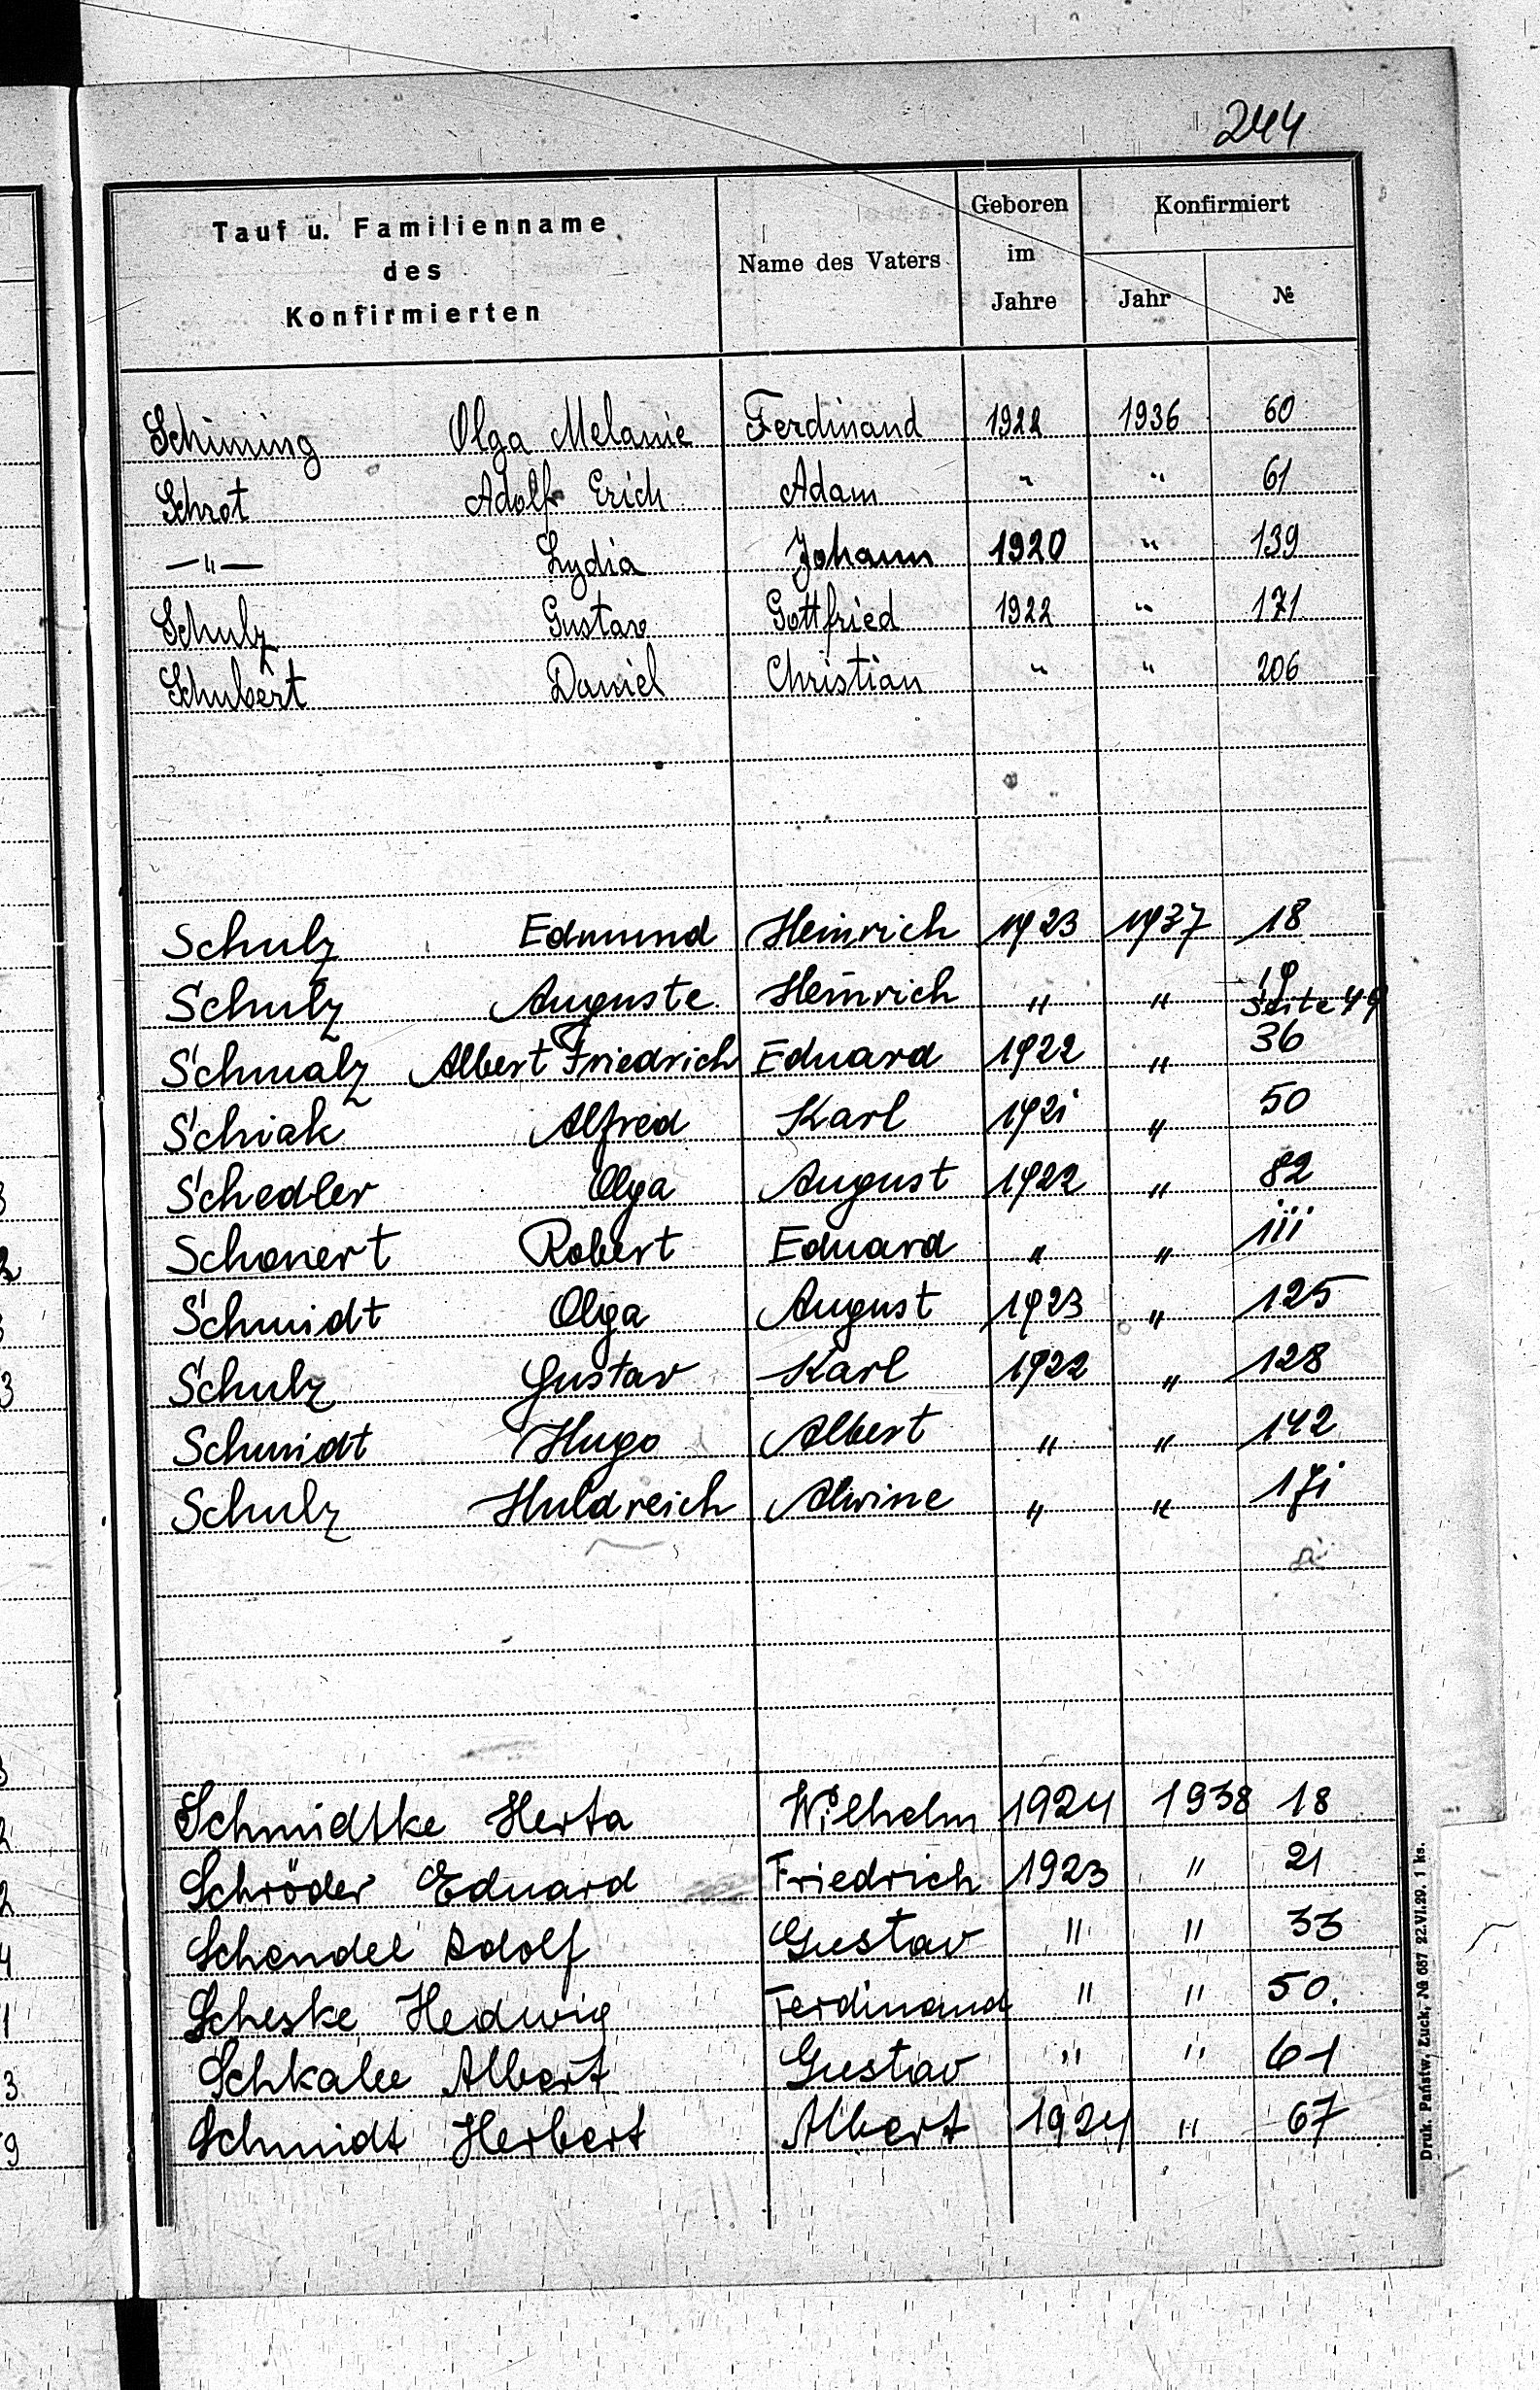 244
Tauf u. Familienname des Konfirmierten Name des Vaters Geboren im Jahre Konfirmiert Jahr №
Schiming Olga Melanie Ferdinand 1922 1936 60
Schrot Adolf Erich Adam " " 61
—"— Lydia Johann 1920 " 139
Schulz Gustav Gottfried 1922 " 171
Schubert Daniel Christian " " 206
Schulz Edmund Heinrich 1923 1937 18
Schulz Auguste Heinrich " " 19 Seite 49
Schmalz Albert Friedrich Eduard 1922 " 36
Schiak Alfred Karl 1921 " 50
Schedler Olga August 1922 " 82
Schonert Robert Eduard " " 111
Schmidt Olga August 1923 " 125
Schulz Gustav Karl 1922 " 128
Schmidt Hugo Albert " " 142
Schulz Huldreich Alwine " " 171
Schmidtke Herta Wilhelm 1924 1938 18
Schröder Eduard Friedrich 1923 " 21
Schendel Adolf Gustav " " 33
Scheske Hedwig Ferdinand " " 50.
Albert Gustav " " 61
Schmidt Herbert Albert 1924 " 67
Druk. Państw. Łuck, № 687 22.VI.29. 1 ks.